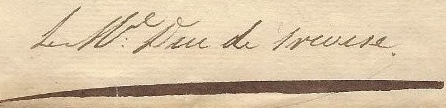 Le M.^al Duc de Trevise.